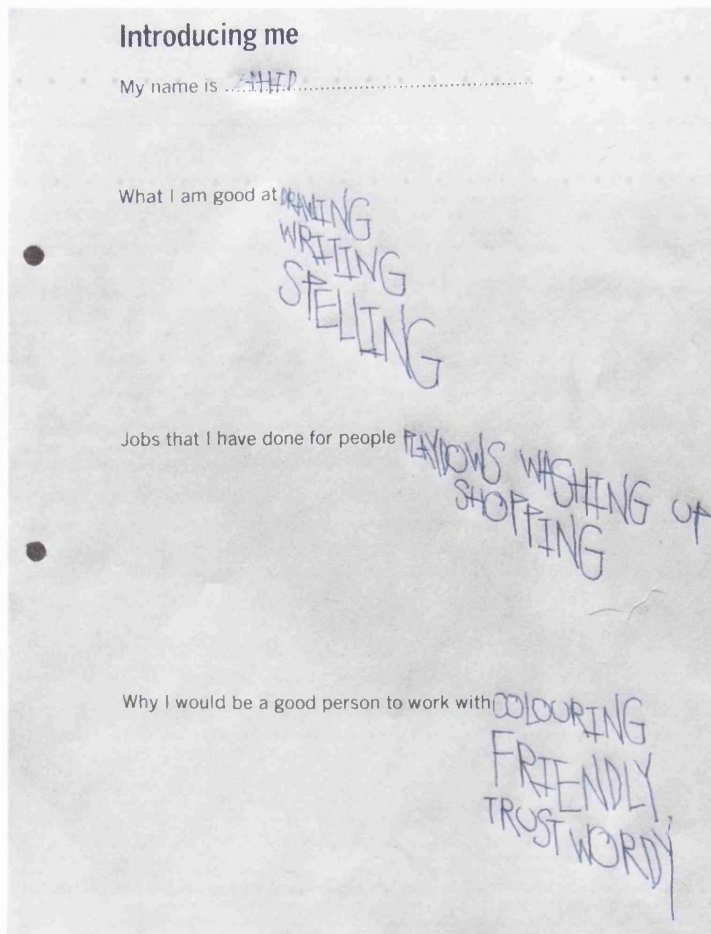 Introducing me
My name is ........................................................
What I am good at DRAWING
WRITING
SPELLING
Jobs that I have done for people WASHING UP
SHOPPING
Why I would be a good person to work with COLOURING
FRIENDLY,
TRUSTWORDY